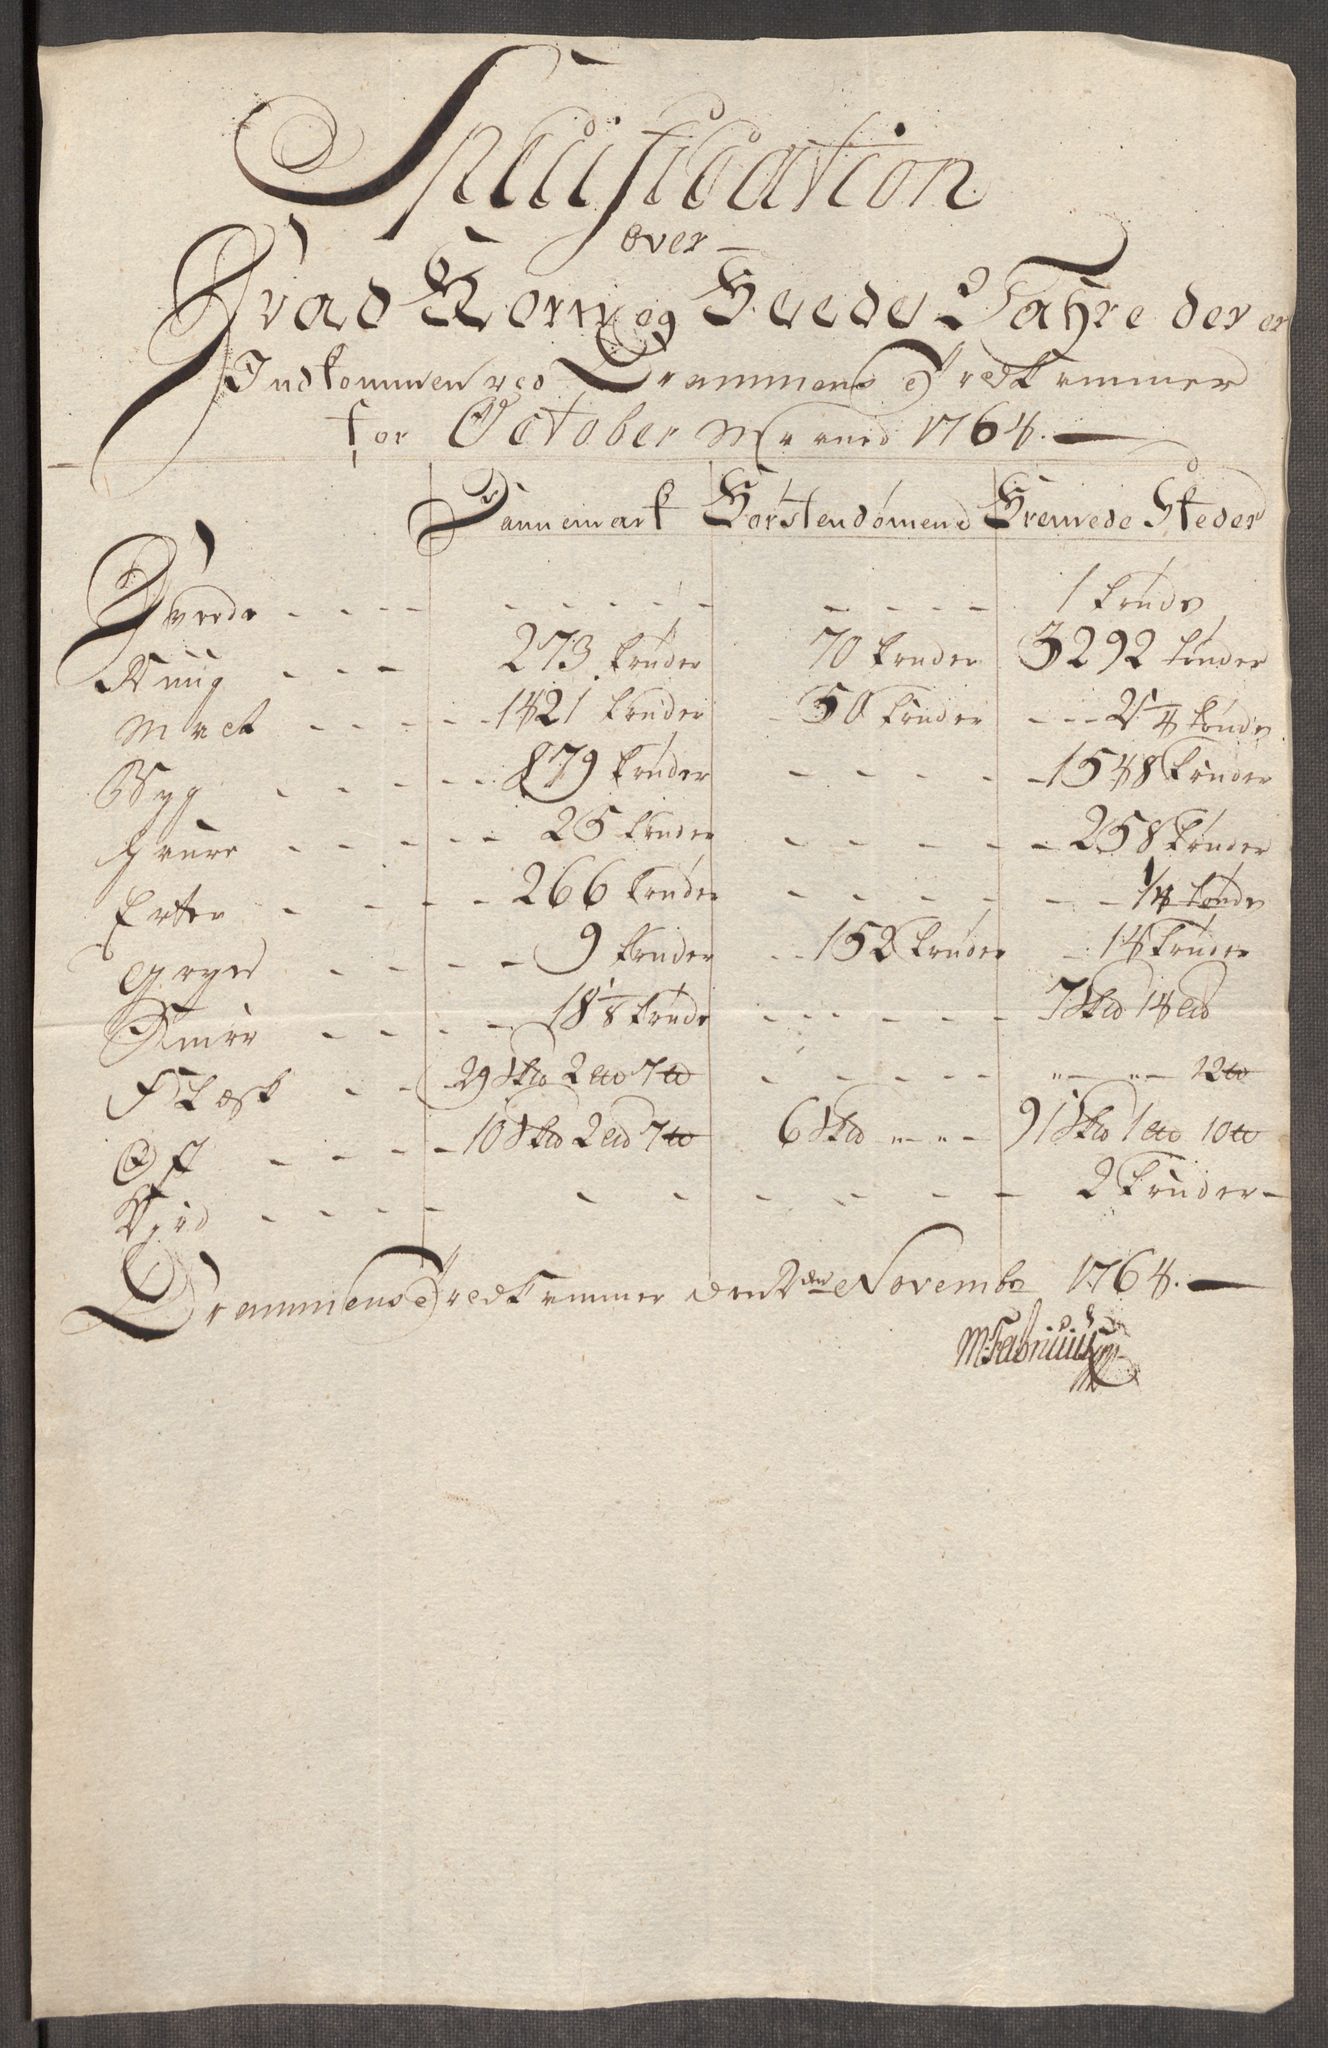 Specification
over
Hvad Korn og Feede Vahre der er
Indkommen ved Drammens Tredkammer
for October Maaned 1764.
Dannemark Førstendømene Fremede Steder
Hvede - - - - - - - - - - - - - 1 tønde
Rùùg - - - 273 tønder 70 tønder 3292 tønder
Malt - - - - - 1421 tønder - 50 tønder - - - 2 1/4 tønde
Byg - - - - - - 879 tønder - - - - - 1548 tønder
Haùre - - - - - - 25 tønder - - - - - 258 tønder
Erter - - - - 266 tønder - - - - - - - 1/4 tønde
Gryn - - - - 9 tønder - - 152 tønder - 14 tønder
Smør - - - - 18 1/8 tønde - - - - - - 7 Sk℔ 14 L℔
Flæsk - - 29 Sk℔ 2 L℔ 7 ℔ - - - - - - " - " - 12 ℔
Ost - - - - - 10 Sk℔ 2 L℔ 7 ℔ 6 Sk℔ " - " - 91 Sk℔ 1 L℔ 10 ℔
Kiød - - - - - - - - - - - 2 tønder -
Drammens Tredkammer den 2den Novembr 1764.
M: Fabricius